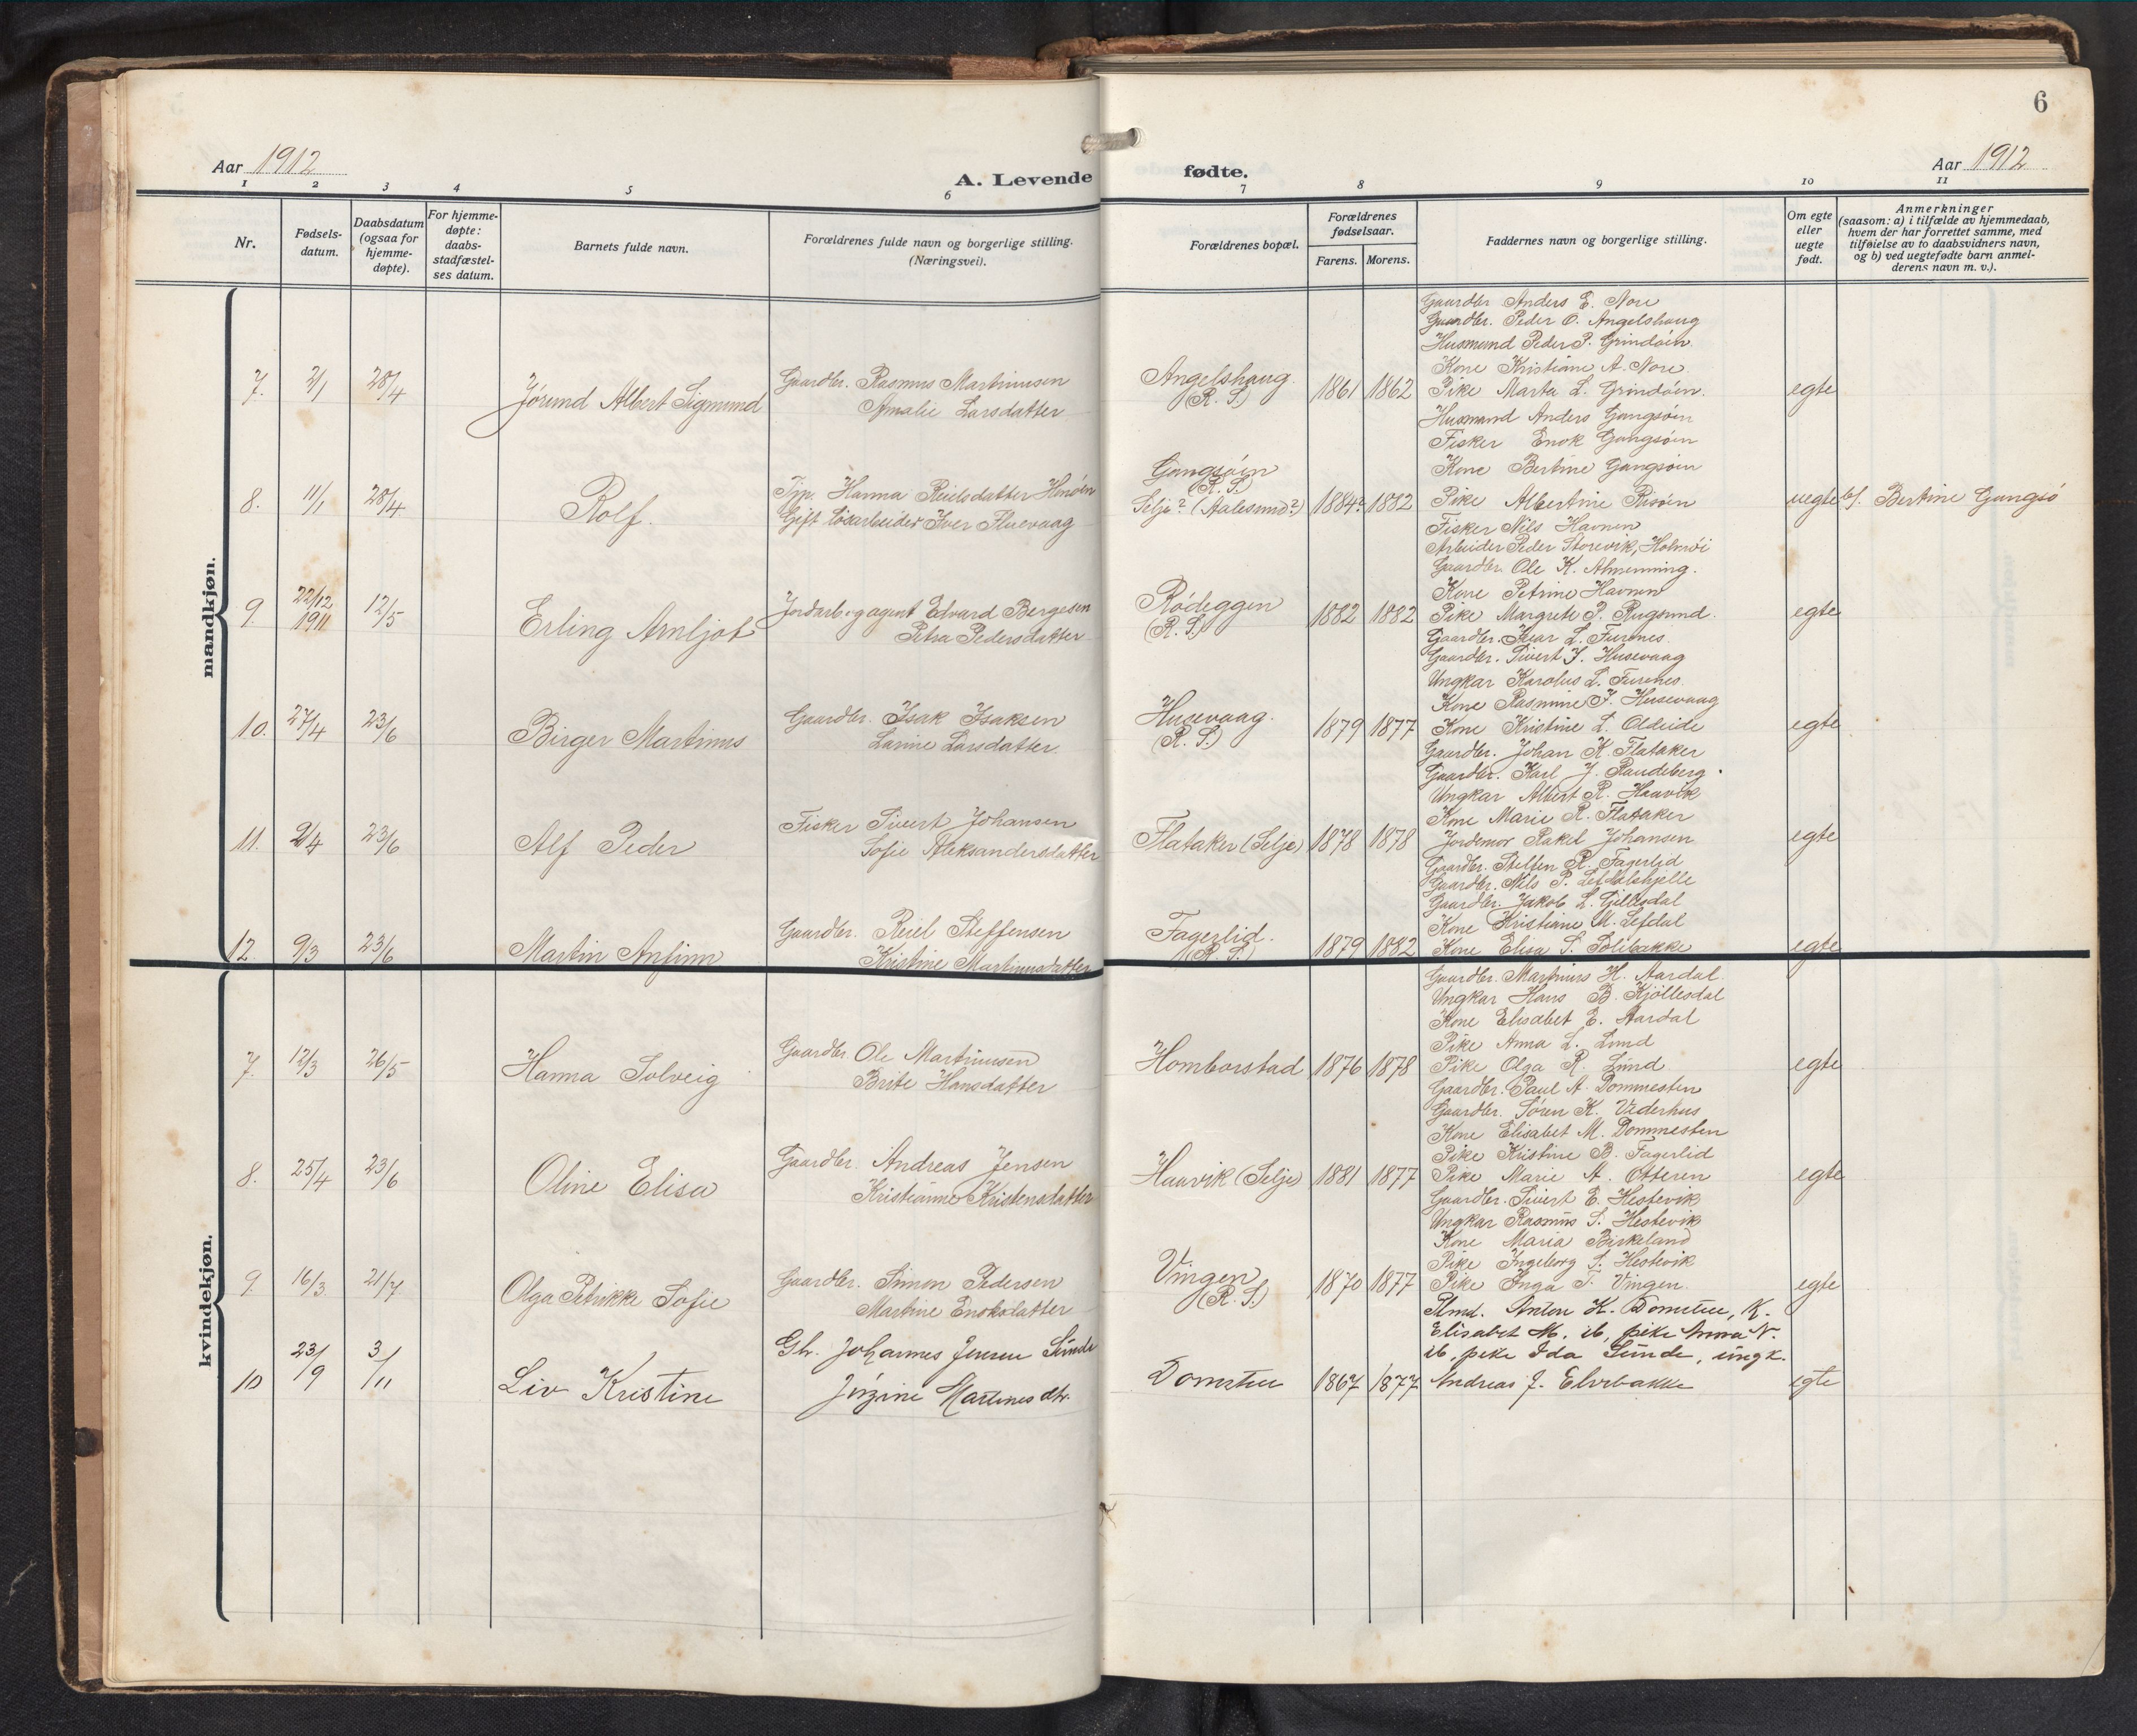 6
Aar 1912
A. Levende fødte.
Aar 1912
1 2 3 4 5 6 7 8 9 10 11
Nr.
Fødsels-
datum.
Daabsdatum
(ogsaa for
hjemme-
døpte).
For hjemme-
døpte:
daabs-
stadfæstel-
ses datum.
Barnets fulde navn.
Forældrenes fulde navn og borgerlige stilling.
(Næringsvei).
Forældrenes bopæl.
Forældrenes
fødselsaar.
Farens. Morens.
Faddernes navn og borgerlige stilling.
Om egte
eller
uegte
født.
Anmerkninger
(saasom: a) i tilfælde av hjemmedaab,
hvem der har forrettet samme, med
tilføielse av to daabsvidners navn,
og b) ved uegtefødte barn anmel-
derens navn m. v.).
mandkjøn.
7. 2/1 28/4 Jørund Albert Sigmund
Gaardbr. Rasmus Martinusen
Amalie Larsdatter
Angelshaug
(R. S.)
1861 1862
Gaardbr. Anders E. Nore
Gaardbr. Peder O. Angelshaug
Husmand Peder P. Grindøin
Kone Kristiane A. Nore
Pike Marta L. Grindøin.
egte
8. 11/1 28/4 Rolf.
Tjp. Hanna Reielsdatter
Gift løsarbeider Iver Fluevaag
Gangsøin
(R. S.)
Selje? (Aalesund?)
1884? 1882
Husmand Anders Gangsøin
Fisker Enok Gangsøin
Kone Bertine Gangsøin
Pike Albertine Risøin
Fisker Nils Havnen
uegte
b/. Bertine Gangsø
9. 22/12 1911 12/5 Erling Arnljot
Jordarb. og agent Edvard Bergesen
Petra Pedersdatter
Rødeggen
(R. S.)
1882 1882
Arbeider Peder Storevik, Holmøi
Gaardbr. Ole K. Almenning.
Kone Petrine Havnen
Pike Margrete P. Rugsund.
egte
10. 27/4 23/6 Birger Martinus
Gaardbr. Isak Isaksen
Larine Larsdatter
Husevaag.
(R. S.)
1879 1877
Gaardbr. Ivar L. Furenes.
Gaardbr. Sivert J. Husevaag
Ungkar Karolus L. Furenes.
Kone Rasmine J. Husevaag
Kone Kristine L. Oldeide
egte
11. 2/4 23/6 Alf Peder
Fisker Sivert Johansen
Sofie Aleksandersdatter
Flataker (Selje)
1878 1878
Gaardbr. Johan K. Flataker
Gaardbr. Karl J. Raudeberg
Ungkar Albert R. Haavik
Kone Marie R. Flataker
Jordemor Rakel Johansen
egte
12. 9/3 23/6 Martin Anfinn
Gaardbr. Reiel Steffensen
Kristine Martinusdatter
Fagerlid.
(R. S.)
1879 1882
Gaardbr. Steffen R. Fagerlid
Gaardbr. Nils P. Lefdalshjelle
Gaardbr. Jakob L. Gillesdal
Kone Kristiane M. Lefdal
Kone Elisa S. Solibakke
egte
kvindekjøn.
7. 12/3 26/5 Hanna Solveig
Gaardbr. Ole Martinusen
Brite Hansdatter
Homborstad
1876 1878
Gaardbr. Martinus H. Aardal
Ungkar Hans B. Kjøllesdal
Kone Elisabet E. Aardal
Pike Anna L. Lund
Pike Olga R. Lund
egte
8. 25/4 23/6 Oline Elisa
Gaardbr. Andreas Jensen
Kristianne Kristensdatter
Haavik (Selje)
1881 1877
Gaardbr. Paul A. Dommesten
Gaardbr. Søren K. Vederhus
Kone Elisabet M. Dommesten
Pike Kristine B. Fagerlid
Pike Marie A. Otteren
egte
9. 16/3 21/7 Olga Petrikke Sofie
Gaardbr. Simon Pedersen
Martine Enoksdatter
Vingen
(R. S.)
1870 1877
Gaardbr. Sivert E. Hestevik
Ungkar Rasmus S. Hestevik
Kone Maria Birkeland
Pike Ingeborg S. Hestevik
Pike Inga T. Vingen.
egte
10 23/9 3/11 Liv Kristine
Gbr. Johannes Jensen Sunde
Jørgine Martines dtr.
Domsten
1867 1877
Anton K. Domsten, K.
Elisabet M. ib, pike Anna N.
ib, pike Ida Sunde, ungk.
Andreas J. Elvebakke
egte